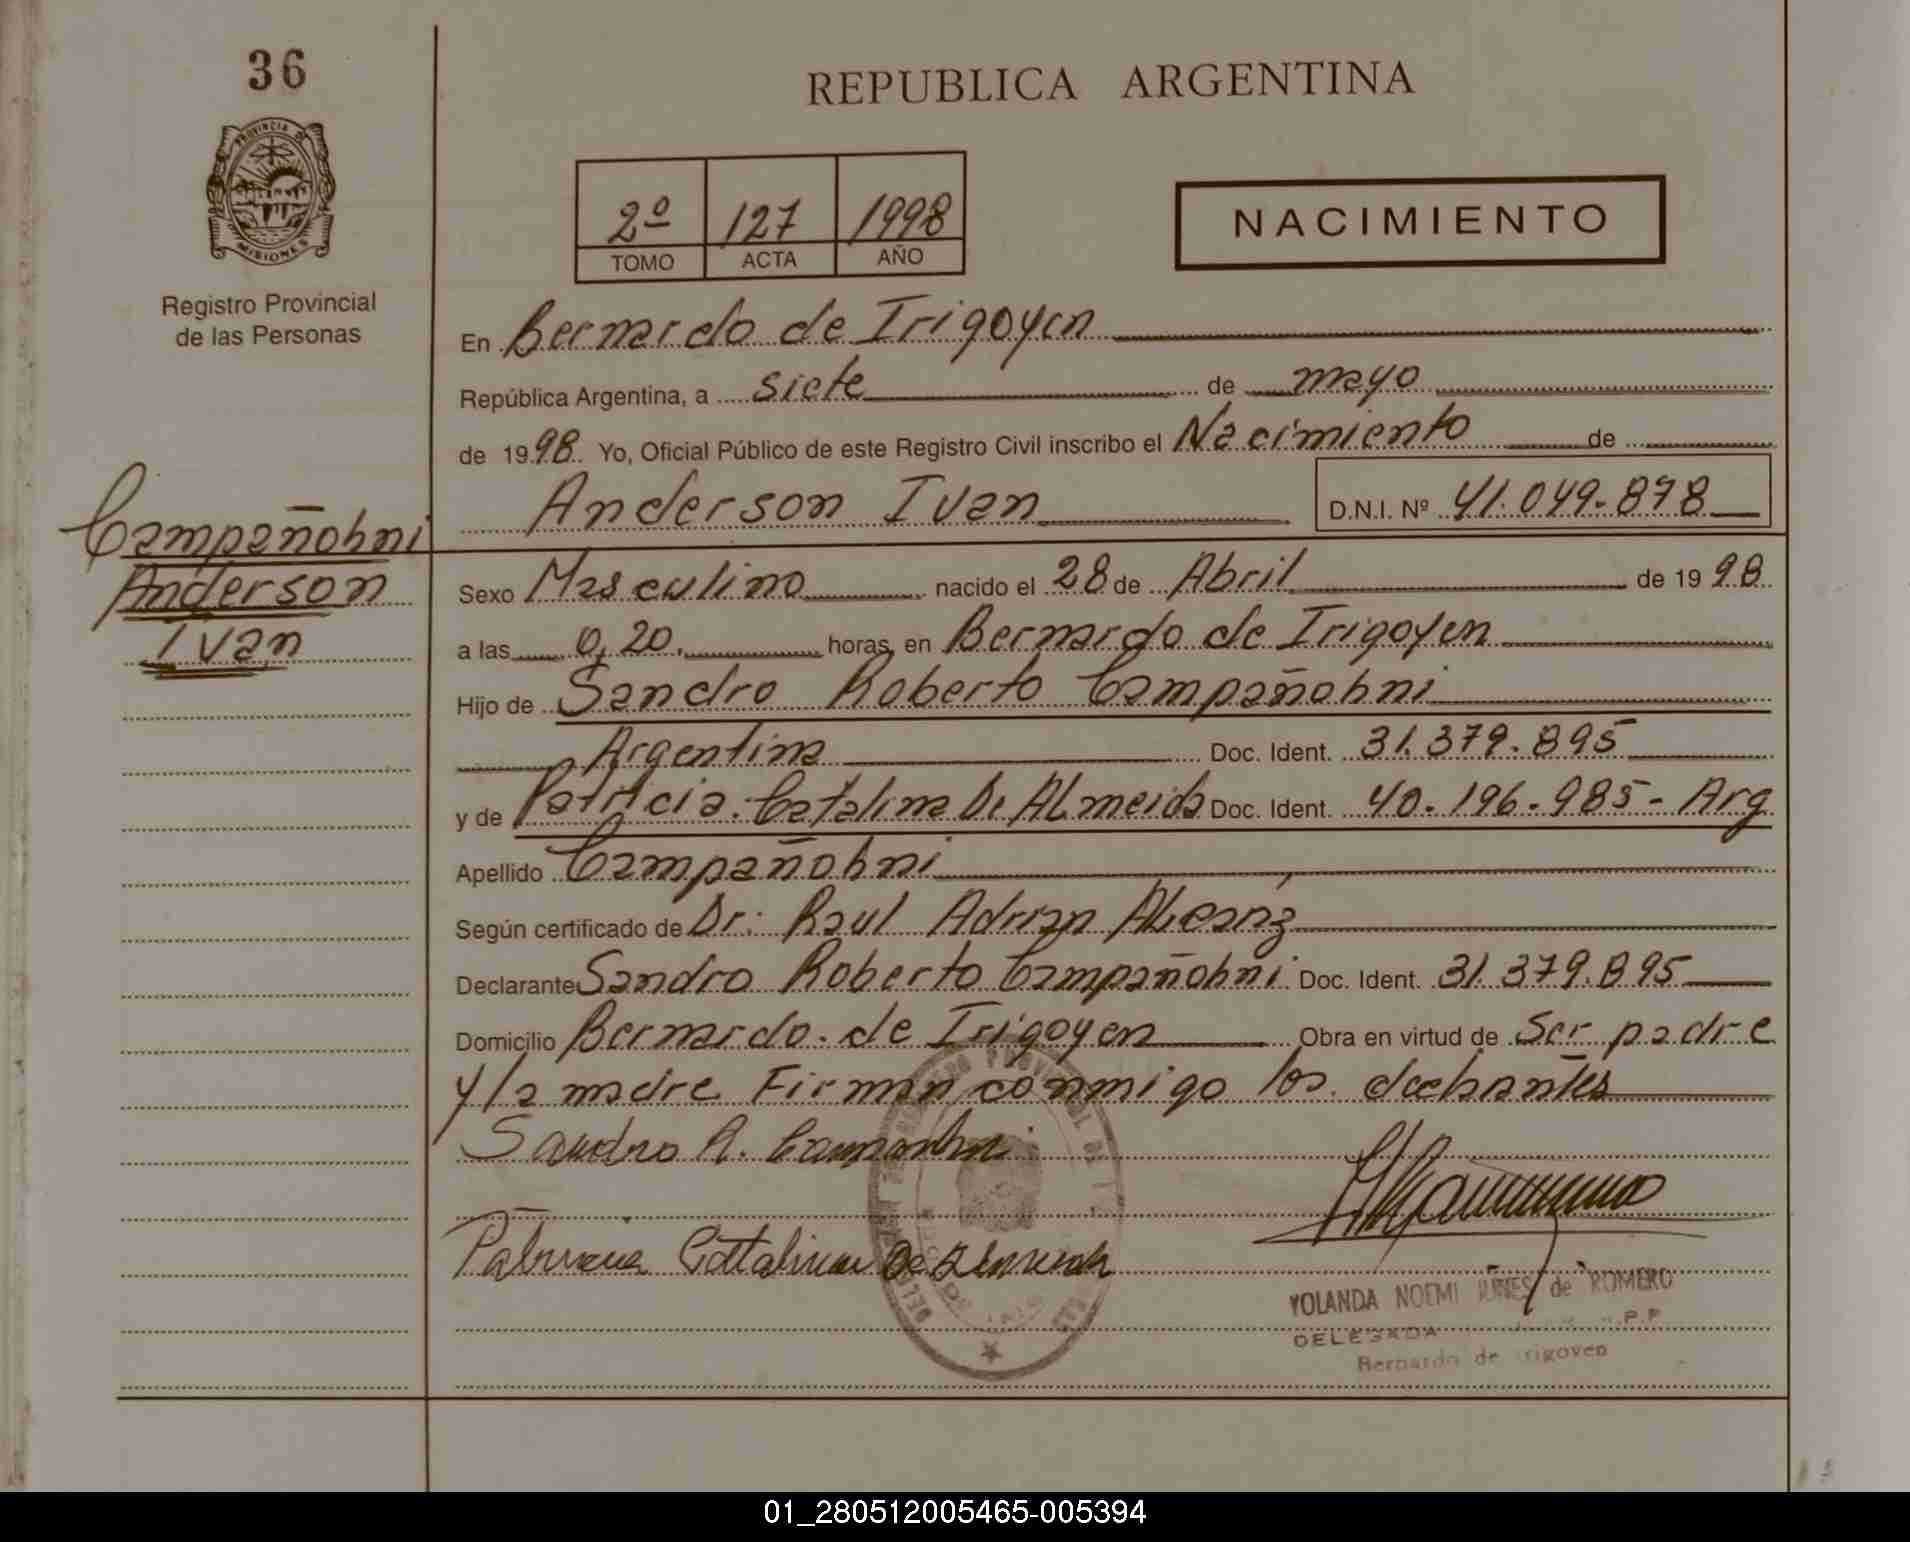 36
PROVINCIA DE
MISIONES
Registro Provincial
de las Personas
REPUBLICA ARGENTINA
2º 127 1998
TOMO ACTA AÑO
NACIMIENTO
En Bernardo de Irigoyen
República Argentina, a siete de mayo
de 1998 Yo, Oficial Público de este Registro Civil inscribo el Nacimiento de
Anderson Ivan D.N.I. Nº 41.049.878
Campañohni
Anderson
Ivan
Sexo Masculino nacido el 28 de Abril de 1998
a las 0,20. horas, en Bernardo de Irigoyen
Hijo de Sandro Roberto Campañohni
Argentina Doc. Ident. 31.379.895
y de Patricia Catalina De ALmeida Doc. Ident. 40.196.985- Arg
Apellido Campañohni
Según certificado de Dr: Raul Adrian
Declarante Sandro Roberto Campañohni Doc. Ident. 31.379.895
Domicilio Bernardo de Irigoyen Obra en virtud de Ser padre
y la madre Firman conmigo los
Sandro R.
Catalina De
YOLANDA NOEMI de ROMERO
DELEGADA
Bernardo de Irigoyen
01_280512005465-005394